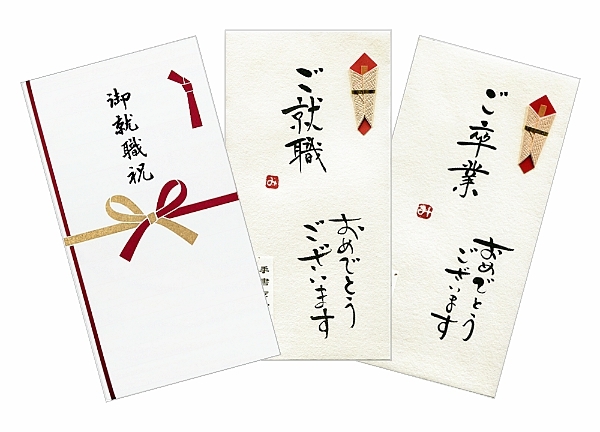 御就職祝
ご就職
み
おめでとう
ございます
手書き
ご卒業
み
おめでとう
ございます